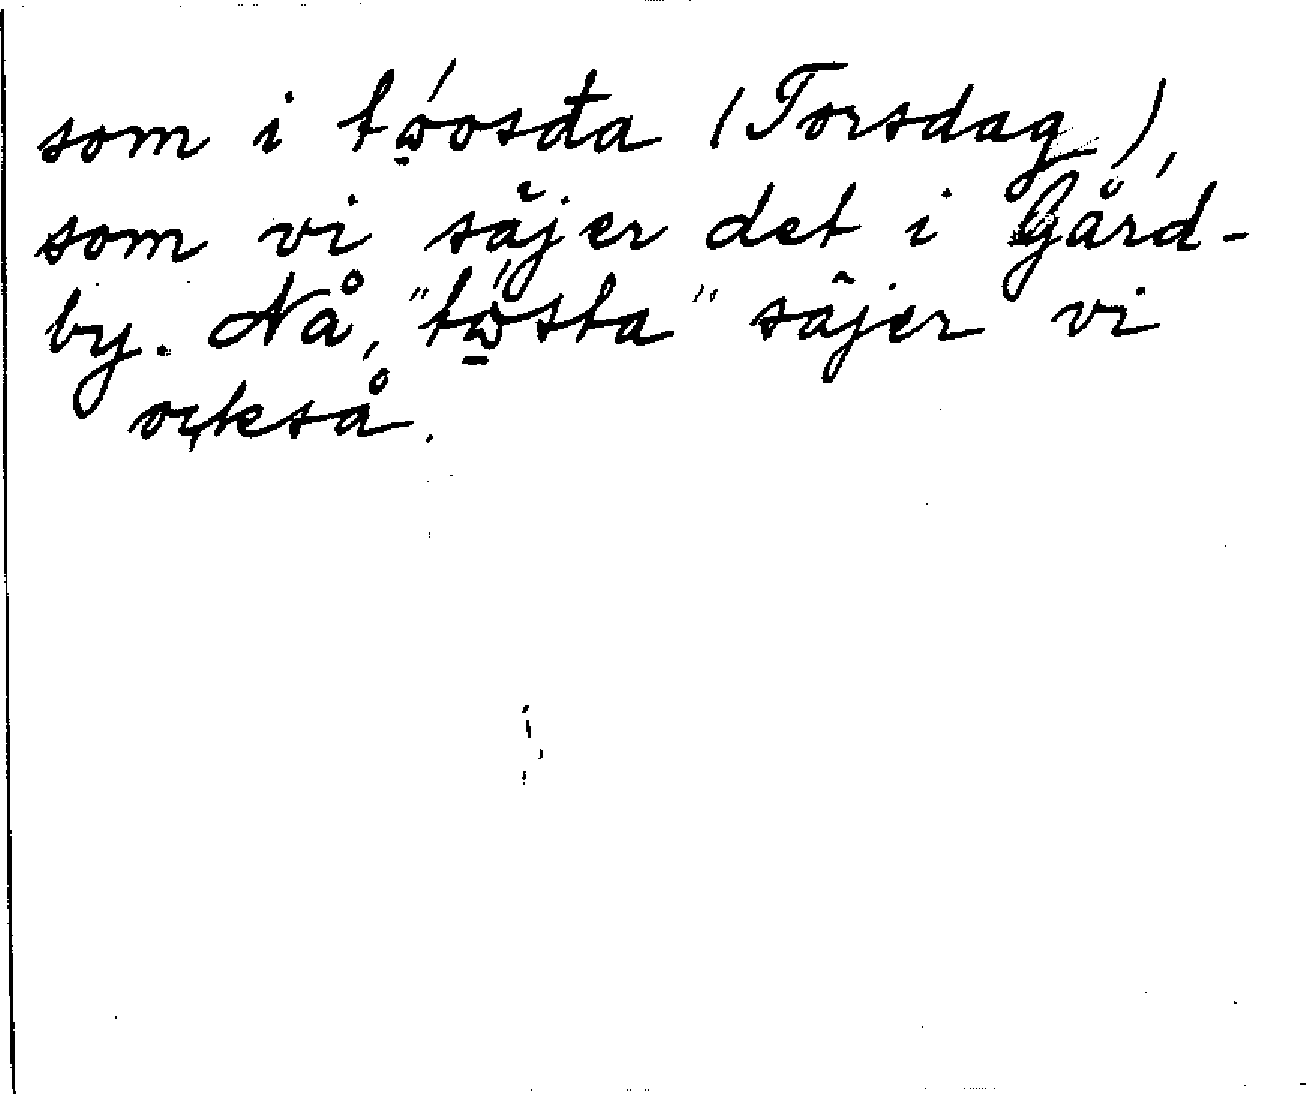 som i tώ̱osđa (Torsdag),
som vi säjer det i Gård-
by. Nå, "tώ̱sta" säjer vi
också.